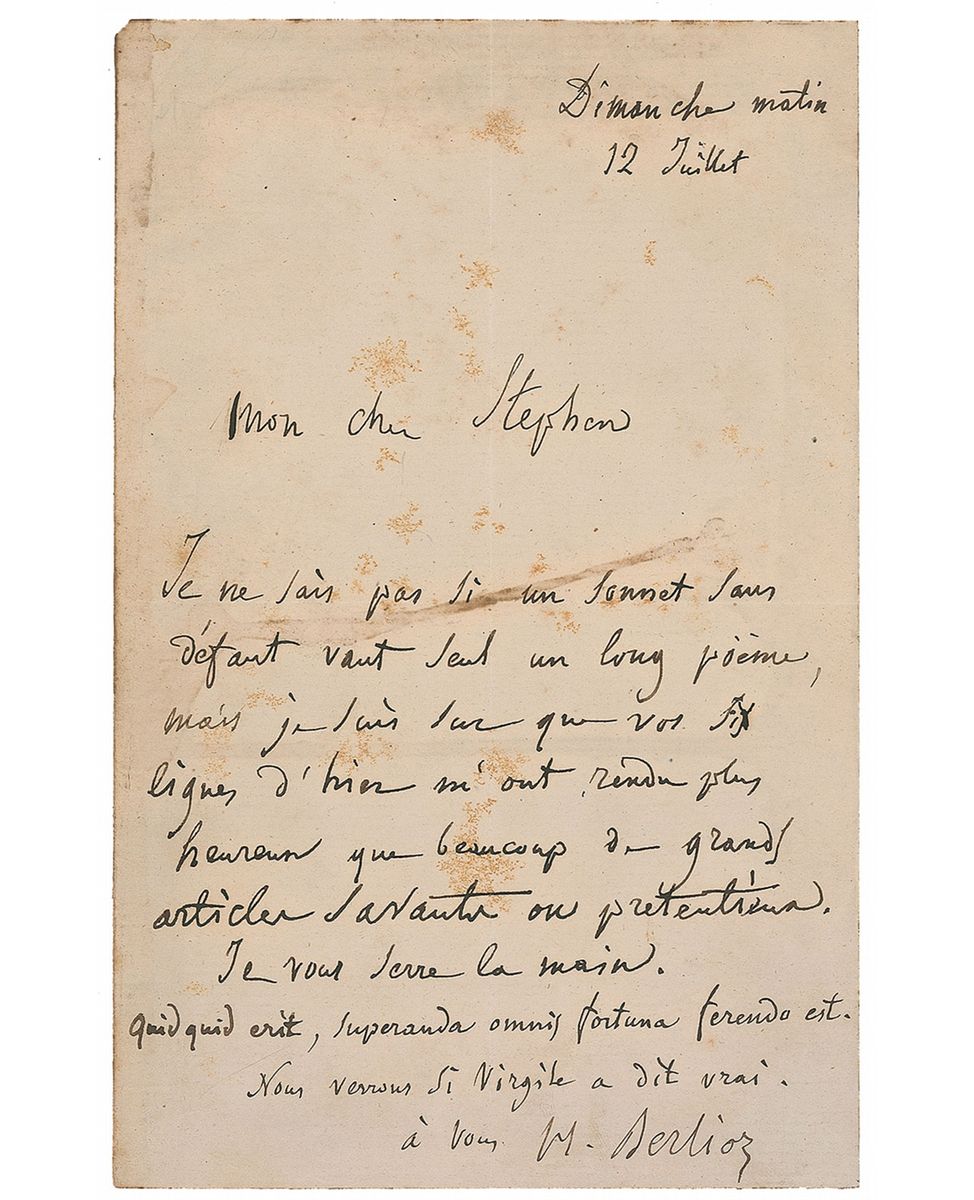 Dimanche matin
12 Juillet
Mon cher Stephen
Je ne sais pas si un sonnet sans
défaut vaut seul un long poëme,
mais je suis sur que vos six
lignes d'hier m'ont rendu plus
heureux que beaucoup de grands
articles savants ou prétentieux.
Je vous serre la main.
Quidquid erit, superanda omnis fortuna ferendo est.
Nous verrons si Virgile a dit vrai.
à vous H. Berlioz